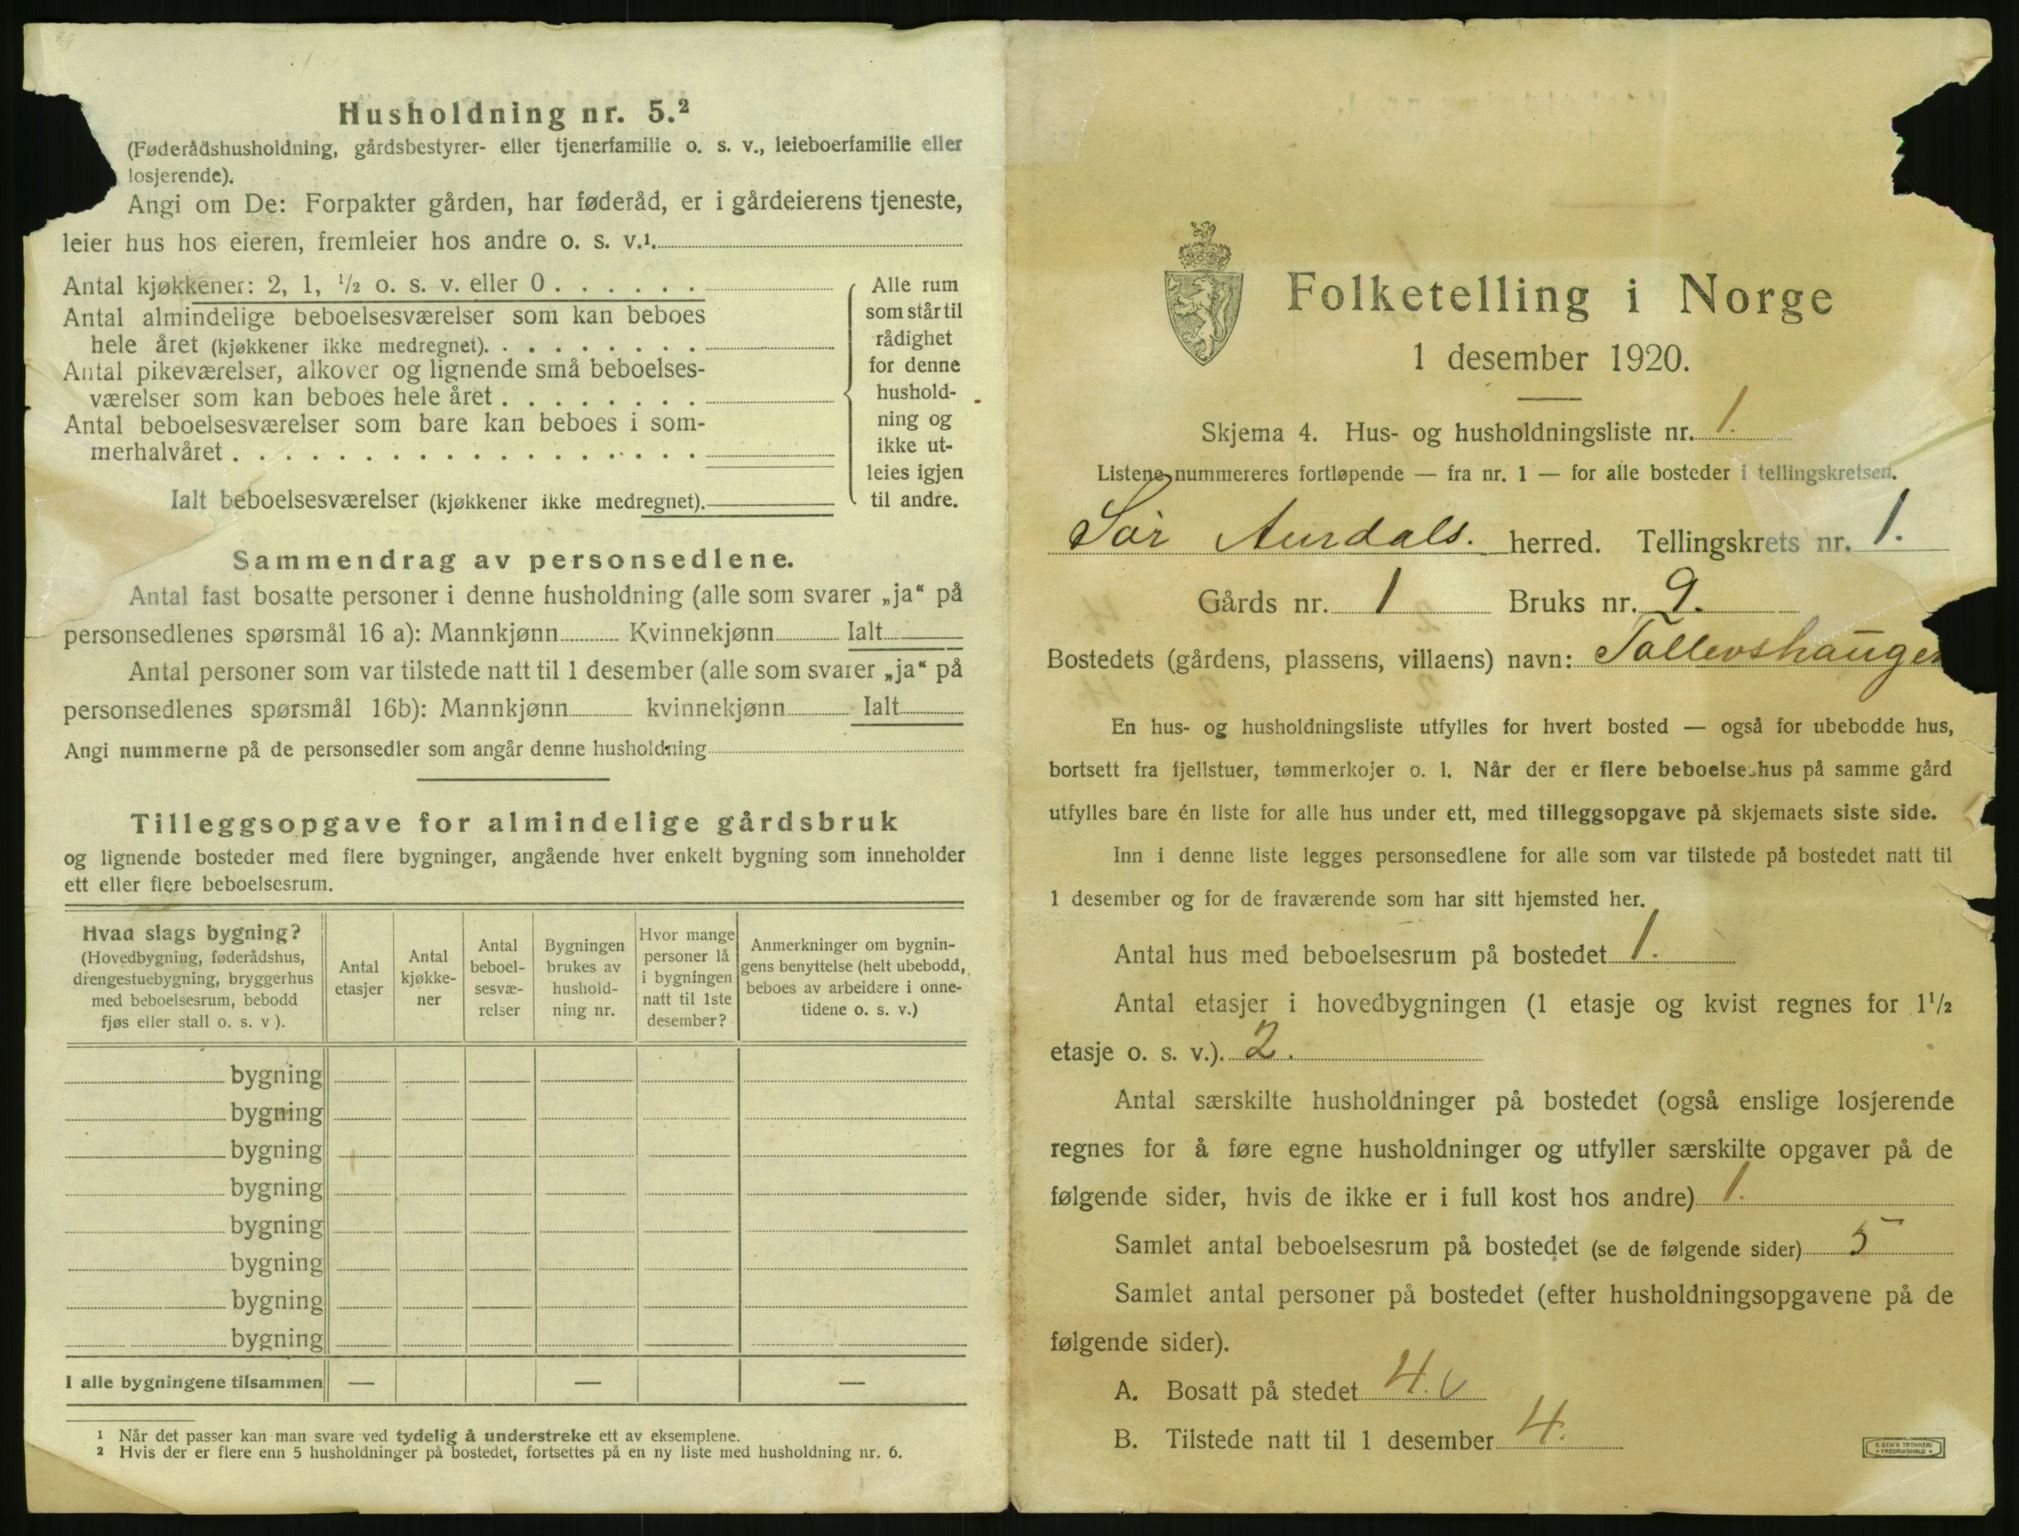 Husholdning nr. 5.²
(Føderådshusholdning, gårdsbestyrer- eller tjenerfamilie o. s. v., leieboerfamilie eller
losjerende).
Angi om De: Forpakter gården, har føderåd, er i gårdeierens tjeneste,
leier hus hos eieren, fremleier hos andre o. s. v.¹
Antal kjøkkener: 2, 1, ½ o. s. v. eller 0
Antal almindelige beboelsesværelser som kan beboes
hele året (kjøkkener ikke medregnet)
Antal pikeværelser, alkover og lignende små beboelses-
værelser som kan beboes hele året
Antal beboelsesværelser som bare kan beboes i som-
merhalvåret
Ialt beboelsesværelser (kjøkkener ikke medregnet)
Alle rum
som står til
rådighet
for denne
hushold-
ning og
ikke ut-
leies igjen
til andre.
Sammendrag av personsedlene.
Antal fast bosatte personer i denne husholdning (alle som svarer „ja“ på
personsedlenes spørsmål 16 a): Mannkjønn Kvinnekjønn Ialt
Antal personer som var tilstede natt til 1 desember (alle som svarer „ja“ på
personsedlenes spørsmål 16b): Mannkjønn kvinnekjønn Ialt
Angi nummerne på de personsedler som angår denne husholdning
Tilleggsopgave for almindelige gårdsbruk
og lignende bosteder med flere bygninger, angående hver enkelt bygning som inneholder
ett eller flere beboelsesrum.
Hvad slags bygning?
(Hovedbygning, føderådshus,
drengestuebygning, bryggerhus
med beboelsesrum, bebodd
fjøs eller stall o. s. v ).
Antal
etasjer
Antal
kjøkke-
ner
Antal
beboel-
sesvæ-
relser
Bygningen
brukes av
hushold-
ning nr.
Hvor mange
personer lå
i bygningen
natt til 1ste
desember?
Anmerkninger om bygnin-
gens benyttelse (helt ubebodd,
beboes av arbeidere i onne-
tidene o. s. v.)
bygning
bygning
bygning
bygning
bygning
bygning
bygning
bygning
I alle bygningene tilsammen — — —
¹ Når det passer kan man svare ved tydelig å understreke ett av eksemplene.
² Hvis der er flere enn 5 husholdninger på bostedet, fortsettes på en ny liste med husholdning nr. 6.
Folketelling i Norge
1 desember 1920.
Skjema 4. Hus- og husholdningsliste nr. 1.
Listene nummereres fortløpende — fra nr. 1 — for alle bosteder i tellingskretsen.
Sør Aurdals. herred. Tellingskrets nr. 1.
Gårds nr. 1 Bruks nr. 9.
Bostedets (gårdens, plassens, villaens) navn: Tollevshaugen
En hus- og husholdningsliste utfylles for hvert bosted — også for ubebodde hus,
bortsett fra fjellstuer, tømmerkojer o. l. Når der er flere beboelseshus på samme gård
utfylles bare én liste for alle hus under ett, med tilleggsopgave på skjemaets siste side.
Inn i denne liste legges personsedlene for alle som var tilstede på bostedet natt til
1 desember og for de fraværende som har sitt hjemsted her.
Antal hus med beboelsesrum på bostedet 1.
Antal etasjer i hovedbygningen (1 etasje og kvist regnes for 1½
etasje o. s. v.). 2.
Antal særskilte husholdninger på bostedet (også enslige losjerende
regnes for å føre egne husholdninger og utfyller særskilte opgaver på de
følgende sider, hvis de ikke er i full kost hos andre) 1.
Samlet antal beboelsesrum på bostedet (se de følgende sider) 5
Samlet antal personer på bostedet (efter husholdningsopgavene på de
følgende sider).
A. Bosatt på stedet 4.
B. Tilstede natt til 1 desember 4.